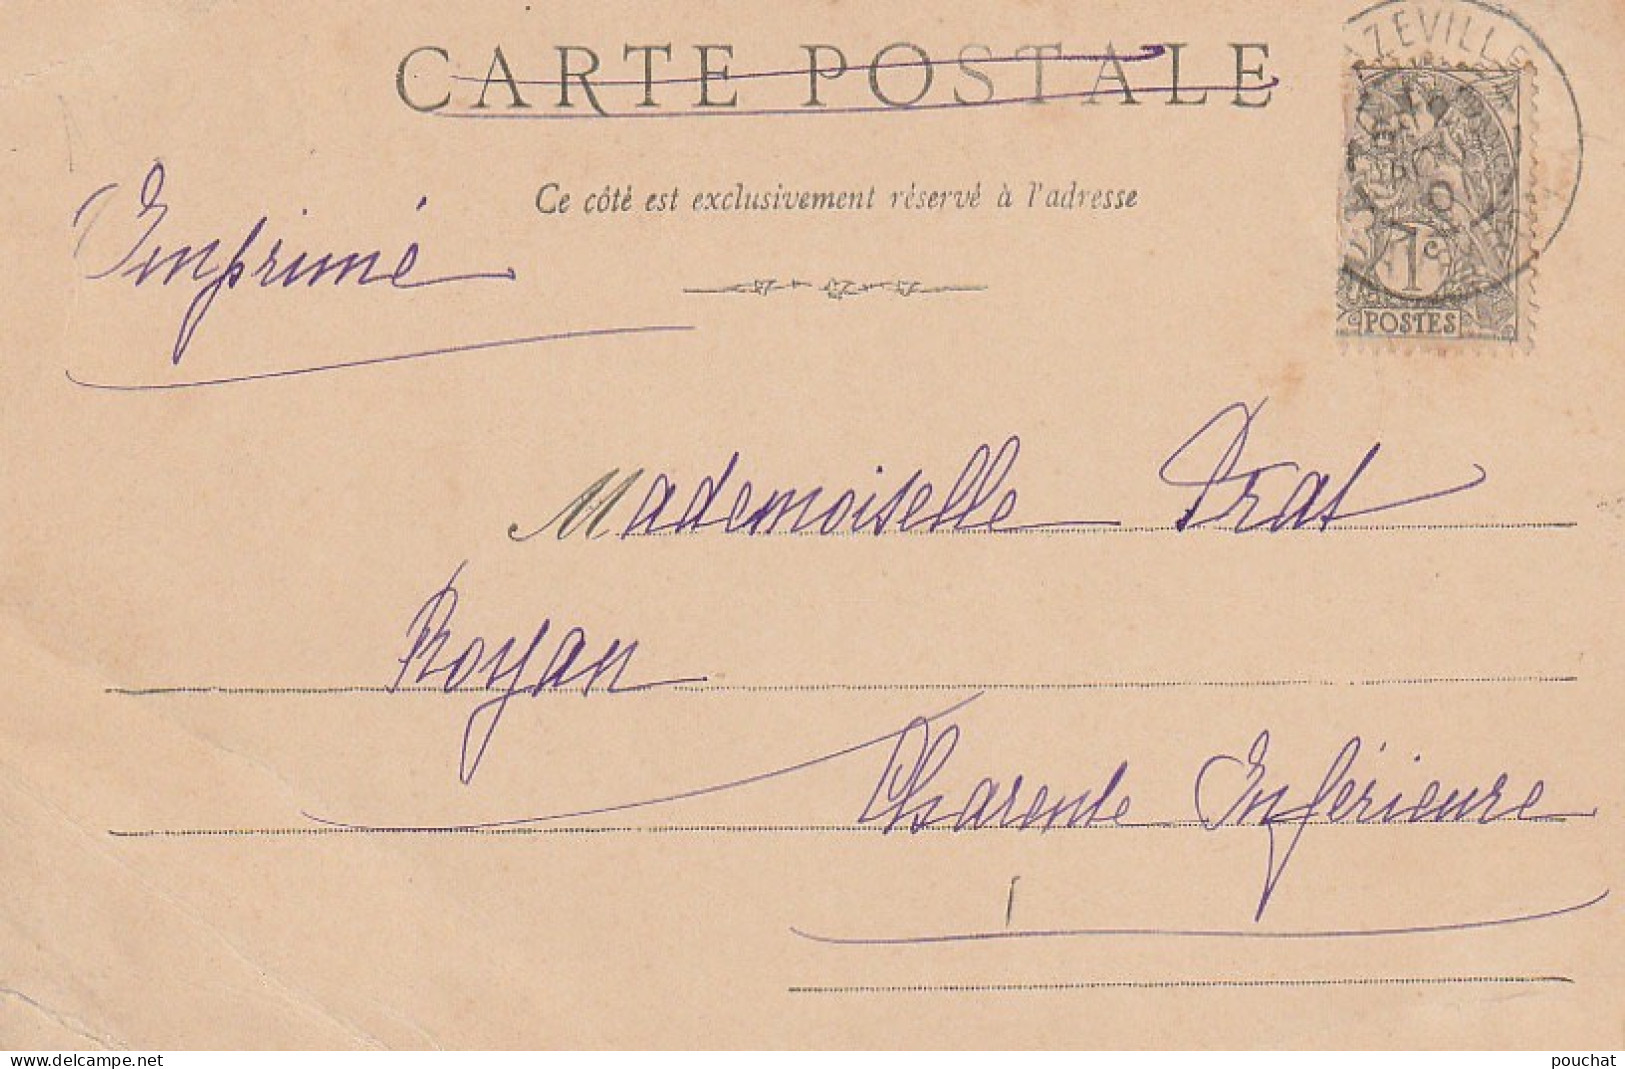 CARTE POSTALE
AZEVILLE
Ce côté est exclusivement réservé à l'adresse
Imprimé
1c
POSTES
Mademoiselle Prat
Royan
Charente Inférieure
www.delcampe.net
pouchat